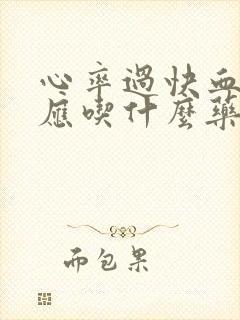 心率過快血
應喫什麼藥
而包果